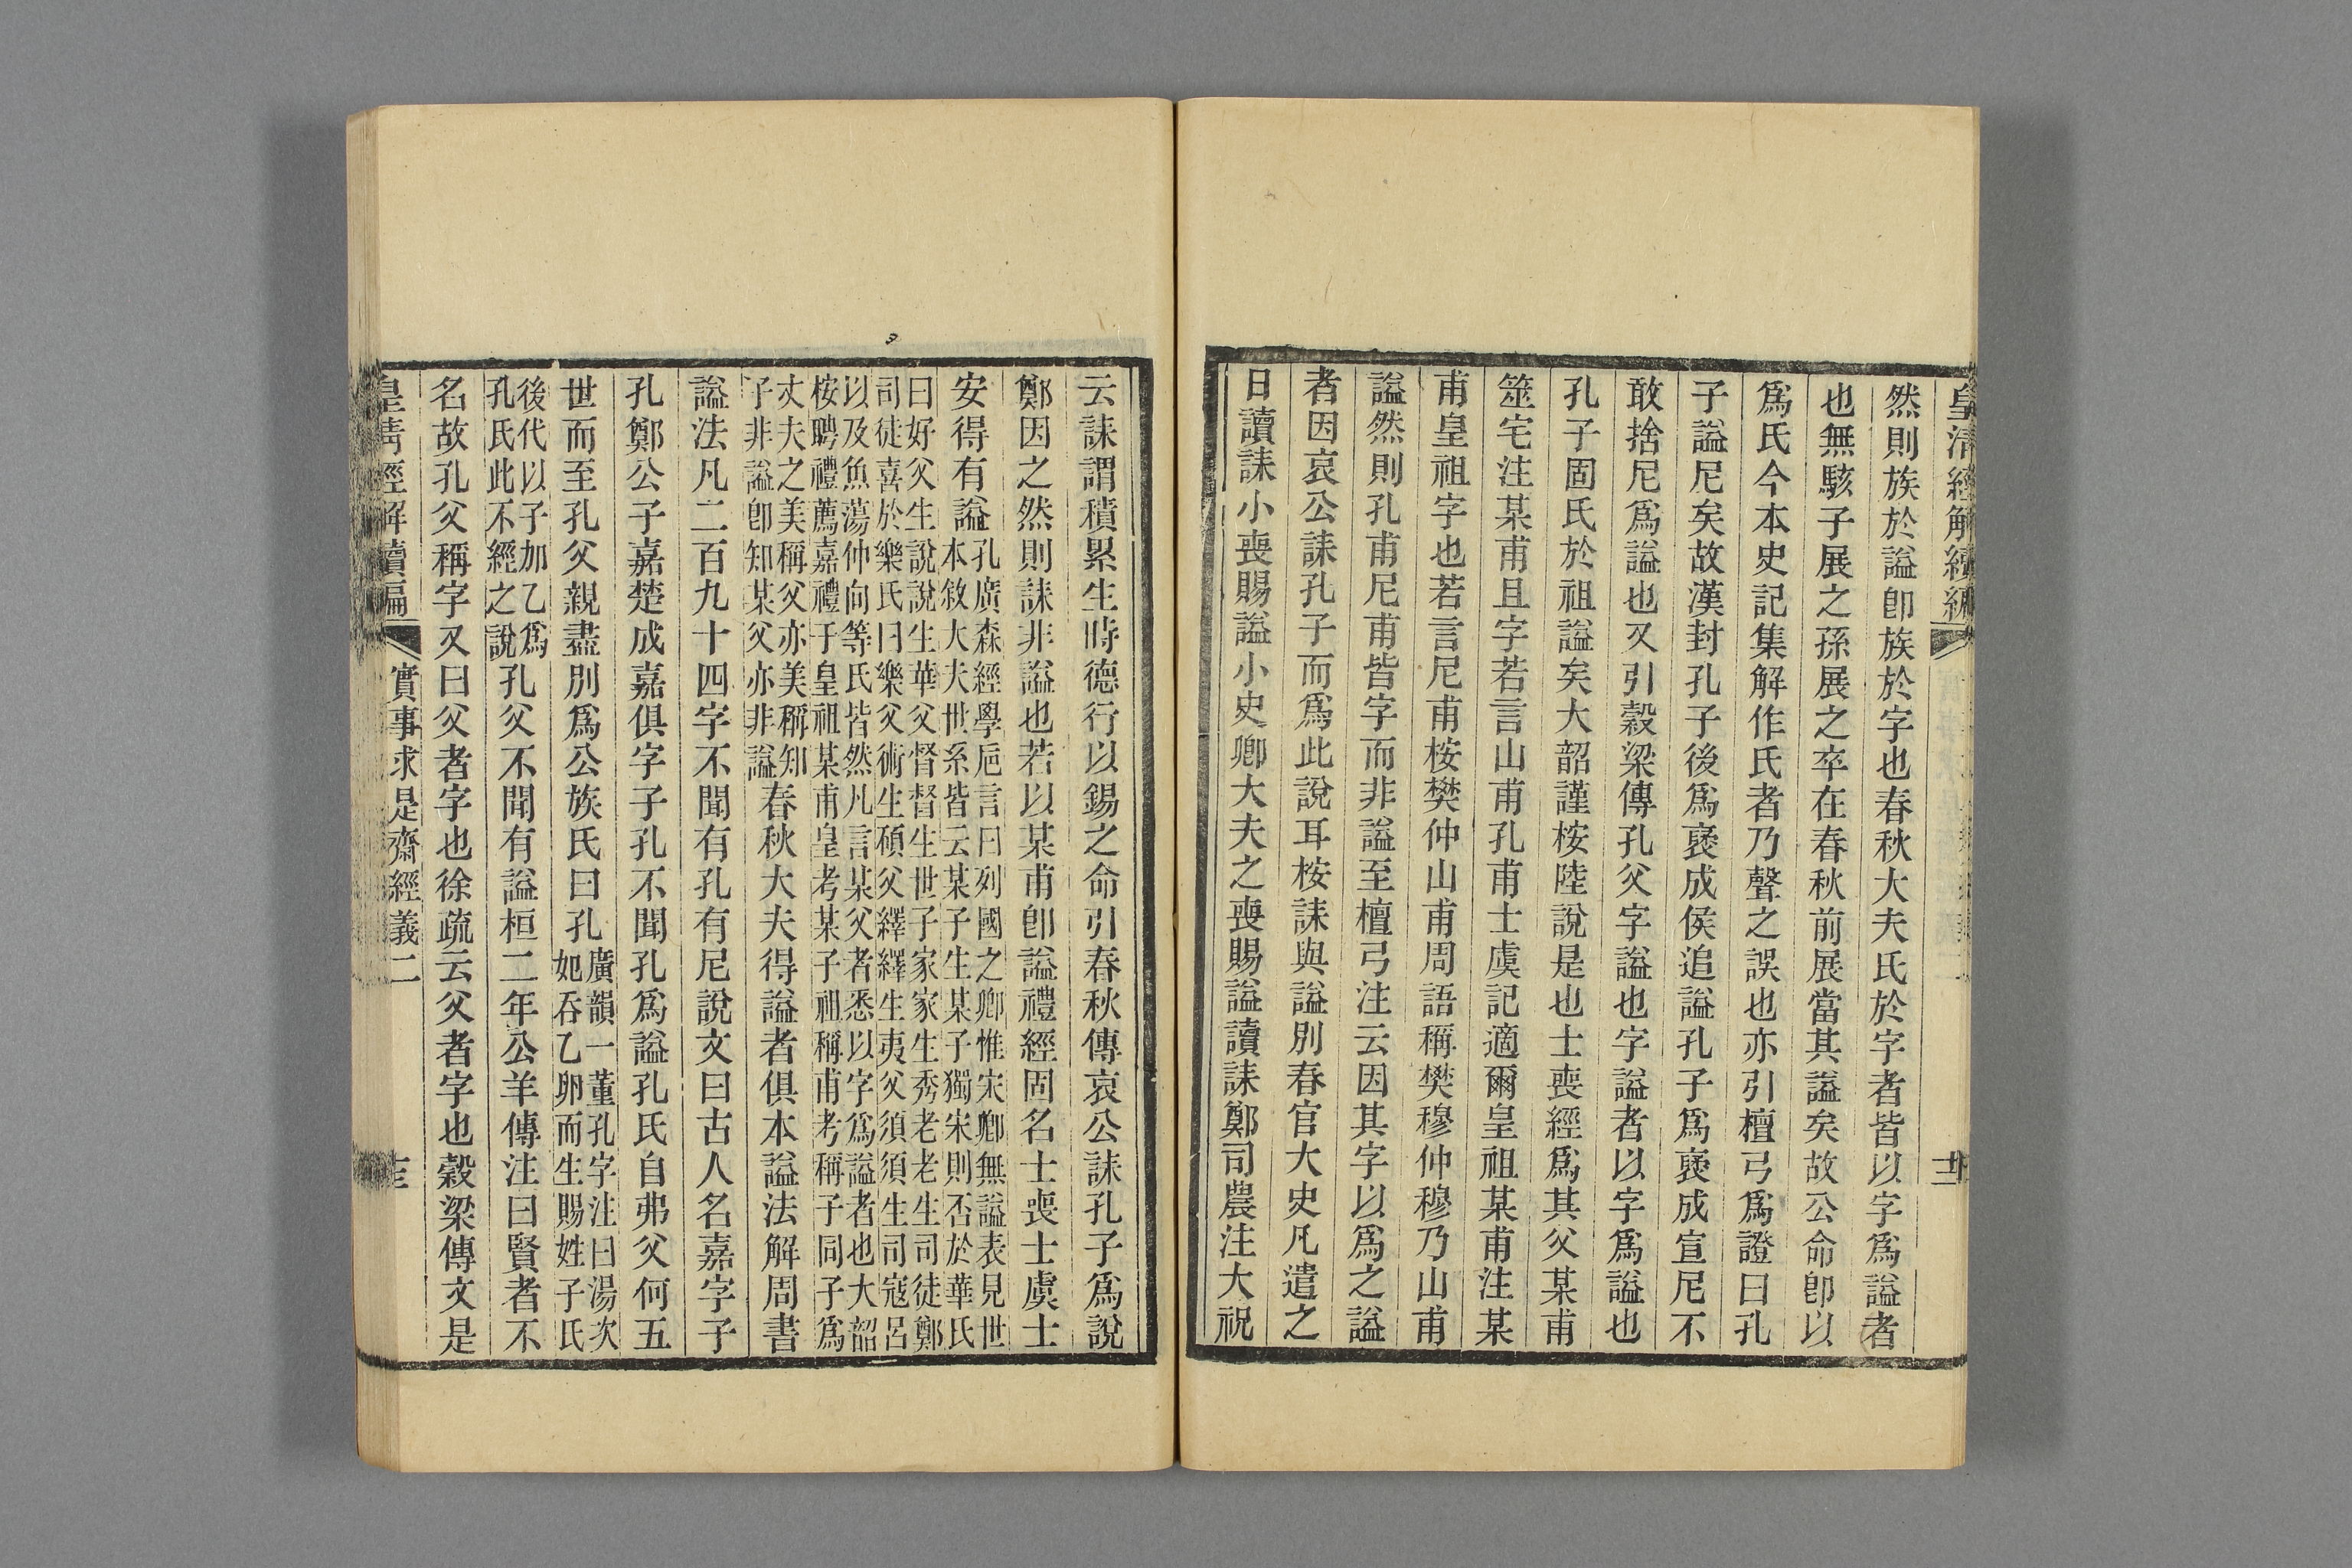 皇淸經解續編
然則族於謚卽族於字也春秋大夫氏於字者皆以字爲謚者
也無駭子展之孫展之卒在春秋前展當其謚矣故公命卽以
爲氏今本史記集解作氏者乃聲之誤也亦引檀弓爲證曰孔
子謚尼矣故漢封孔子後爲襃成侯追謚孔子爲襃成宣尼不
敢捨尼爲謚也又引穀梁傳孔父字謚也字謚者以字爲謚也
孔子固氏於祖謚矣大韶謹桉陸說是也士喪經爲其父某甫
筮宅注某甫且字若言山甫孔甫士虞記適爾皇祖某甫注某
甫皇祖字也若言尼甫桉樊仲山甫周語稱樊穆仲穆乃山甫
謚然則孔甫尼甫皆字而非謚至檀弓注云因其字以爲之謚
者因哀公誄孔子而爲此說耳桉誄與謚別春官大史凡遣之
日讀誄小喪賜謚小史卿大夫之喪賜謚讀誄鄭司農注大祝
云誄謂積累生時德行以錫之命引春秋傳哀公誄孔子爲說
鄭因之然則誄非謚也若以某甫卽謚禮經固名士喪士虞士
安得有謚
孔廣森經學巵言曰列國之卿惟宋卿無謚表見世
本敘大夫世系皆云某子生某子獨宋則否於華氏
曰好父生說說生華父督督生世子家家生秀老老生司徒鄭
司徒喜於樂氏曰樂父術生碩父繹繹生夷父須須生司寇呂
以及魚蕩仲向等氏皆然凡言某父者悉以字爲謚者也大韶
桉聘禮薦嘉禮于皇祖某甫皇考某子祖稱甫考稱子同子爲
丈夫之美稱父亦美稱知
子非謚卽知某父亦非謚
春秋大夫得謚者俱本謚法解周書
謚法凡二百九十四字不聞有孔有尼說文曰古人名嘉字子
孔鄭公子嘉楚成嘉俱字子孔不聞孔爲謚孔氏自弗父何五
世而至孔父親盡別爲公族氏曰孔
廣韻一董孔字注曰湯次
妃吞乙卵而生賜姓子氏
後代以子加乙爲
孔氏此不經之說
孔父不聞有謚桓二年公羊傳注曰賢者不
名故孔父稱字又曰父者字也徐疏云父者字也穀梁傳文是
皇淸經解續編
實事求是齋經義二